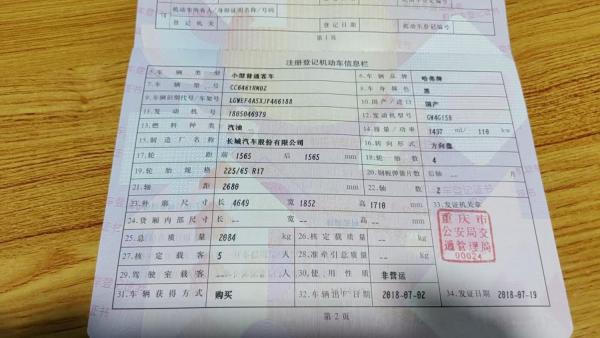 机动车所有人/身份证明名称/号码
登记机关 登记日期 机动车登记编号
第1页
注册登记机动车信息栏
5.车辆类型 小型普通客车 6.车辆品牌 哈弗牌
7.车辆型号 CC6461RM0Z 8.车身颜色 黑
9.车辆识别代号/车架号 LGWEF4A5XJF466188 10.国产/进口 国产
11.发动机号 1805046979 12.发动机型号 GW4G15B
13.燃料种类 汽油 14.排量/功率 1497 ml/ 110 kw
15.制造厂名称 长城汽车股份有限公司 16.转向形式 方向盘
17.轮距 前 1565 后 1565 mm 18.轮胎数 4
19.轮胎规格 225/65 R17 20.钢板弹簧片数 后轴 -- 片
21.轴距 2680 mm 22.轴数 2
23.外廓尺寸 长 4649 宽 1852 高 1710 mm 33.发证机关章
24.货厢内部尺寸 长 -- 宽 -- 高 -- mm
25.总质量 2084 kg 26.核定载质量 -- kg
27.核定载客 5 人 28.准牵引总质量 -- kg
29.驾驶室载客 -- 人 30.使用性质 非营运
31.车辆获得方式 购买 32.车辆出厂日期 2018-07-02 34.发证日期 2018-07-19
重庆市
公安局交
通管理局
00024
第2页